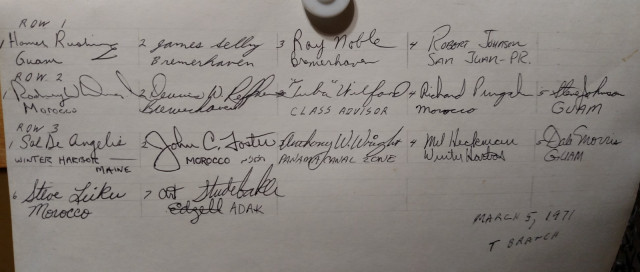 ROW 1
1 Homer Rushing 2 James Selby 3 Ray Noble 4 Robert Johnson
Guam Bremerhaven Bremerhaven San Juan - PR.
ROW 2
1 Rodney W. 2 Dennis W. "Tuba" Wilford 4 Richard 5 Steve Johnson
Morocco Bremerhaven CLASS ADVISOR Morocco GUAM
ROW 3
1 Sal De Angelis 2 John C. Foster 3 Anthony W. Wright 4 Mel Heckman 5 Dale Morris
WINTER HARBOR MAINE MOROCCO PANAMA CANAL ZONE Winter Harbor GUAM
6 Steve 7 Art Studebaker
Morocco Edzell ADAK
MARCH 5, 1971
T BRANCH